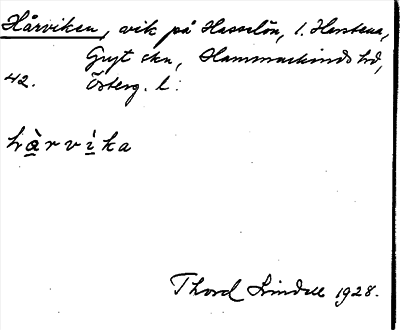 Hårviken, vik på Hasselön, l. Harstena,
Gryt skn, Hammarkinds hd,
42. Österg. l.
hàrvìka
Thord Lindell 1928.